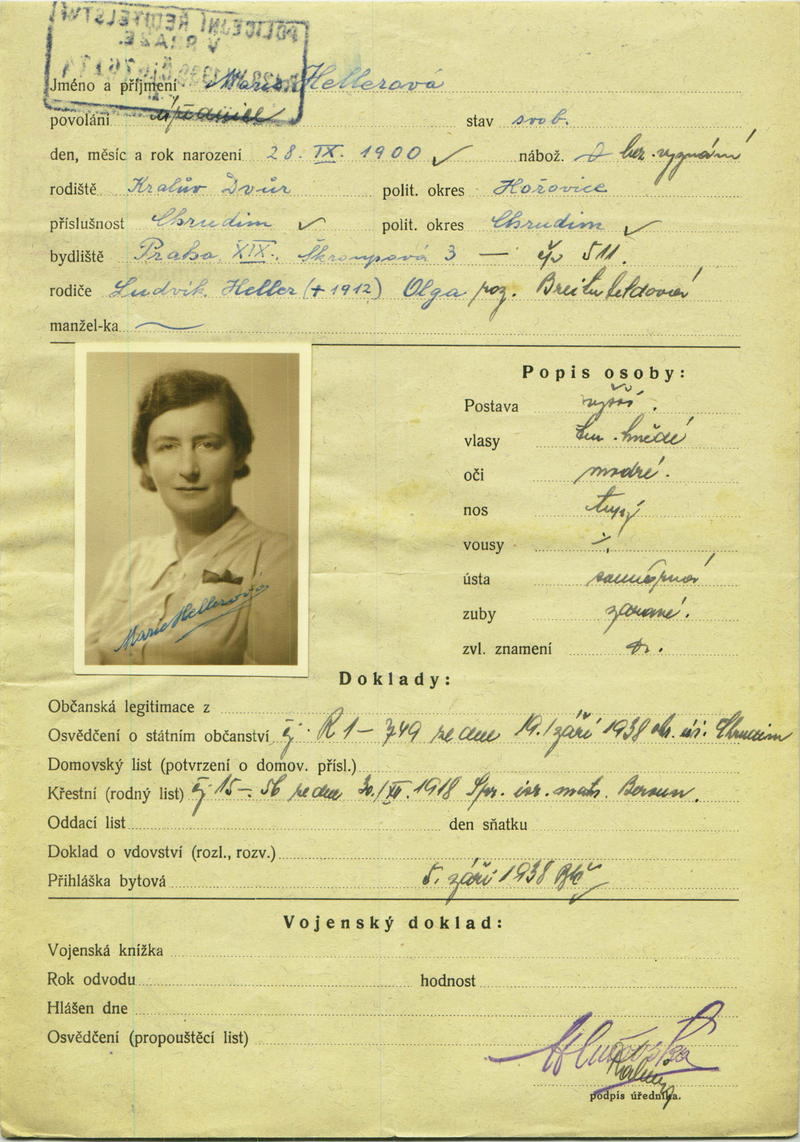 POLICEJNÍ ŘEDITELSTVÍ
V PRAZE.
Jméno a příjmení Marie Hellerová
povolání úřednice stav svob.
den, měsíc a rok narození 28. IX. 1900 nábož. bez vyznání
rodiště Králův Dvůr polit. okres Hořovice
příslušnost Chrudim polit. okres Chrudim
bydliště Praha XIX. Škroupova 3 — čp 511.
rodiče Ludvík Heller (+ 1912) Olga roz.
manžel-ka
Popis osoby:
Postava vyšší.
vlasy tm. hnědé
oči modré.
nos tupý
vousy
ústa souměrná
zuby zdravé.
zvl. znamení
Marie Hellerová
Doklady:
Občanská legitimace z
Osvědčení o státním občanství čj. R 1 – 749 ze dne 19./září 1938 okr. úř. Chrudim
Domovský list (potvrzení o domov. přísl.)
Křestní (rodný list) čj 15 – 56 ze dne 30./XI. 1918 Spr. isr. matr. Beroun.
Oddací list den sňatku
Doklad o vdovství (rozl., rozv.)
Přihláška bytová 5. září 1938
Vojenský doklad:
Vojenská knížka
Rok odvodu hodnost
Hlášen dne
Osvědčení (propouštěcí list)
podpis úředníka.